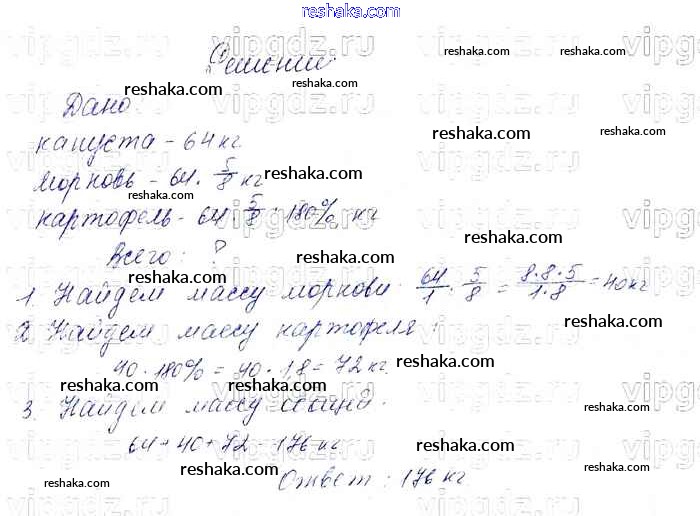 reshaka.com
Решение
Дано:
капуста - 64 кг
морковь - 64 · 5/8 кг
картофель - 64 · 5/8 · 180% кг
Всего: ?
1. Найдем массу моркови: 64/1 · 5/8 = 8·8·5/1·8 = 40 кг
2. Найдем массу картофеля:
40 · 180% = 40 · 1,8 = 72 кг
3. Найдем массу овощей:
64 + 40 + 72 = 176 кг
Ответ: 176 кг